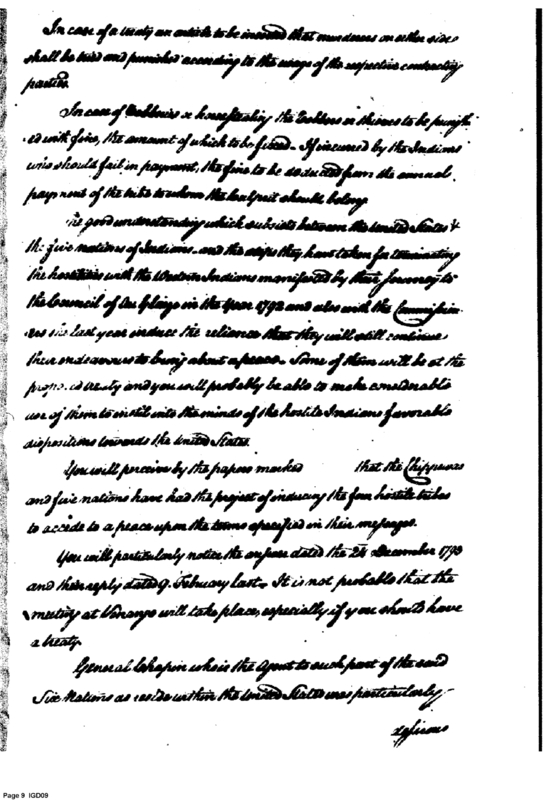 In case of a treaty an article to be inserted that murderers on either side
shall be tried and punished according to the usage of the respective contracting
parties.
In case of Robberies or horsestealing the Robbers or thieves to be punish
ed with fine, the amount of which to be fixed. If incurred by the Indians
who should fail in payment, the fine to be deducted from the annual
payment of the tribe to whom the culprit should belong.
The good understanding which subsists between the United States &
the five nations of Indians. and the steps they have taken for terminating
the hostilities with the Western Indians manifested by their Journey to
the Council of Au Glaize in the Year 1792 and also with the Commission
ers the last year induce the reliance that they will still continue
their endeavours to bring about a peace. Some of them will be at the
proposed treaty and you will probably be able to make considerable
use of them to instil into the minds of the hostile Indians favorable
dispositions towards the United States.
You will perceive by the papers marked that the Chippewas
and five nations have had the project of inducing the four hostile tribes
to accede to a peace upon the terms specified in their messages.
You will particularly notice the answer dated the December 1793
and their reply dated 9. Febuary last. It is not probable that the
meeting at Venango will take place, especially if you should have
a treaty.
General Chapin who is the Agent to such part of the said
Six Nations as reside within the United States was particularly
desirous
Page 9 IGD09